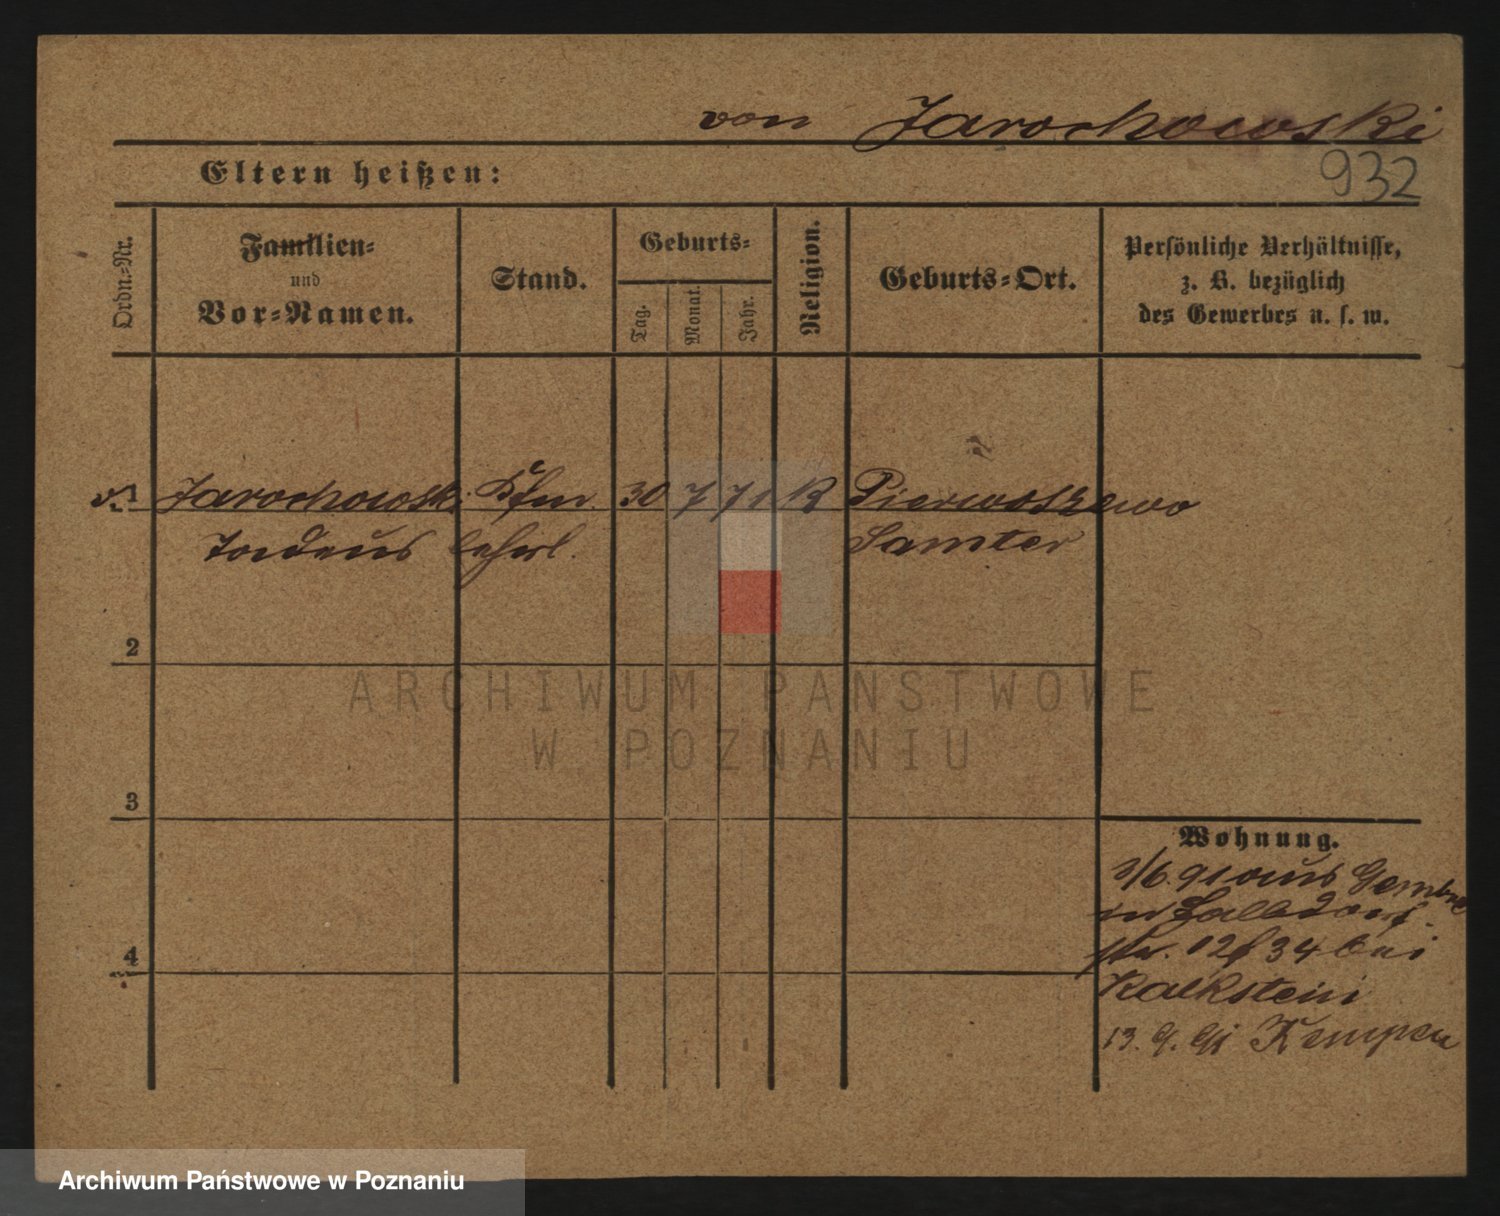 von Jarochowski
Eltern heißen:
932
Ordn.-Nr.
Familien-
und
Vor-Namen.
Stand.
Geburts-
Tag.
Monat.
Jahr.
Religion.
Geburts-Ort.
Persönliche Verhältnisse,
z. B. bezüglich
des Gewerbes u. s. w.
v. 1 Jarochowski Kfm. 30 7 71 K Pierwoszewo
Tadeus lehrl. Samter
2
3
4
Wohnung.
3/6. 91 aus Gembic
in Halbdorf
str. 12 / 34 bei
Kalkstein
13. 9. 91 Kempen
ARCHIWUM PAŃSTWOWE
W POZNANIU
Archiwum Państwowe w Poznaniu